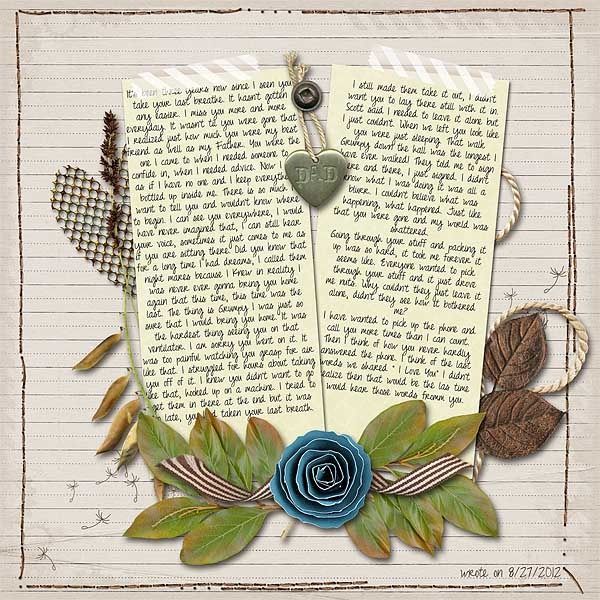 It's been three years now since I seen you
take your last breathe. It hasn't gotten
any easier. I miss you more and more
everyday. It wasn't til you were gone that
I realized just how much you were my best
friend as well as my Father. You were the
one I came to when I needed someone to
confide in, when I needed advice. Now
as if I have no one and I keep everything
bottled up inside me. There is so much I
want to tell you and wouldn't know where
to begin. I can see you everywhere, I would
have never imagined that, I can still hear
your voice, sometimes it just comes to me as
if you are sitting there. Did you know that
for a long time I had dreams, I called them
night mares because I knew in reality I
was never ever gonna bring you home
again that this time, this time was the
last. The thing is Grumpy I was just so
sure that I would bring you home. It was
the hardest thing seeing you on that
ventilator. I am sorry you went on it. It
was too painful watching you grasp for air
like that. I struggled for hours about taking
you off of it. I knew you didn't want to go
like that, hooked up on a machine. I tried to
get them in there at the end but it was
too late, you'd taken your last breath.
DAD
I still made them take it out, I didn't
want you to lay there still with it in.
Scott said I needed to leave it alone but
I just couldn't. When we left you look like
you were just sleeping. That walk
Grumpy down the hall was the longest I
have ever walked! They told me to sign
here and there, I just signed. I didn't
know what I was doing it was all a
blurr. I couldn't believe what was
happening, what happened. Just like
that you were gone and my world was
shattered.
Going through your stuff and packing it
up was so hard, it took me forever it
seems like. Everyone wanted to pick
through your stuff and it just drove
me nuts. Why couldn't they just leave it
alone, didn't they see how it bothered
me?
I have wanted to pick up the phone and
call you more times than I can count.
Then I think of how you never hardly
answered the phone. I think of the last
words we shared " I Love You" I didn't
realize then that would be the las time
would hear those words fromm you.
wrote on 8/27/2012